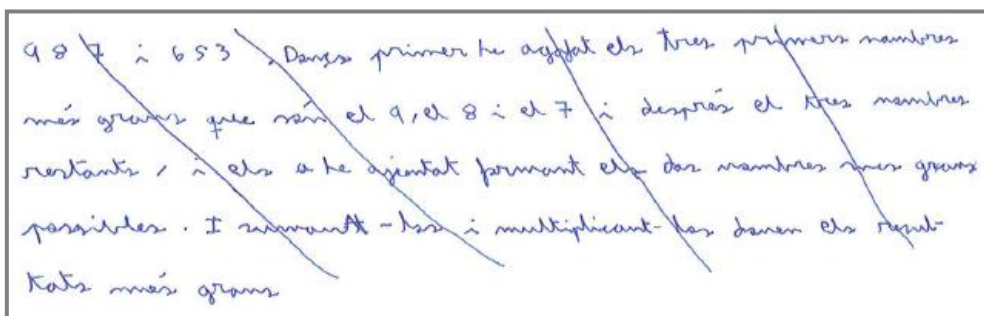 987 i 653. Donçs primer he agafat els tres primers nombres
més grans que són el 9, el 8 i el 7 i després el tres nombres
restants, i els a he ajuntat formant els dos nombres mes grans
possibles. I sumant-los i multiplicant-los donen els resul-
tats més grans